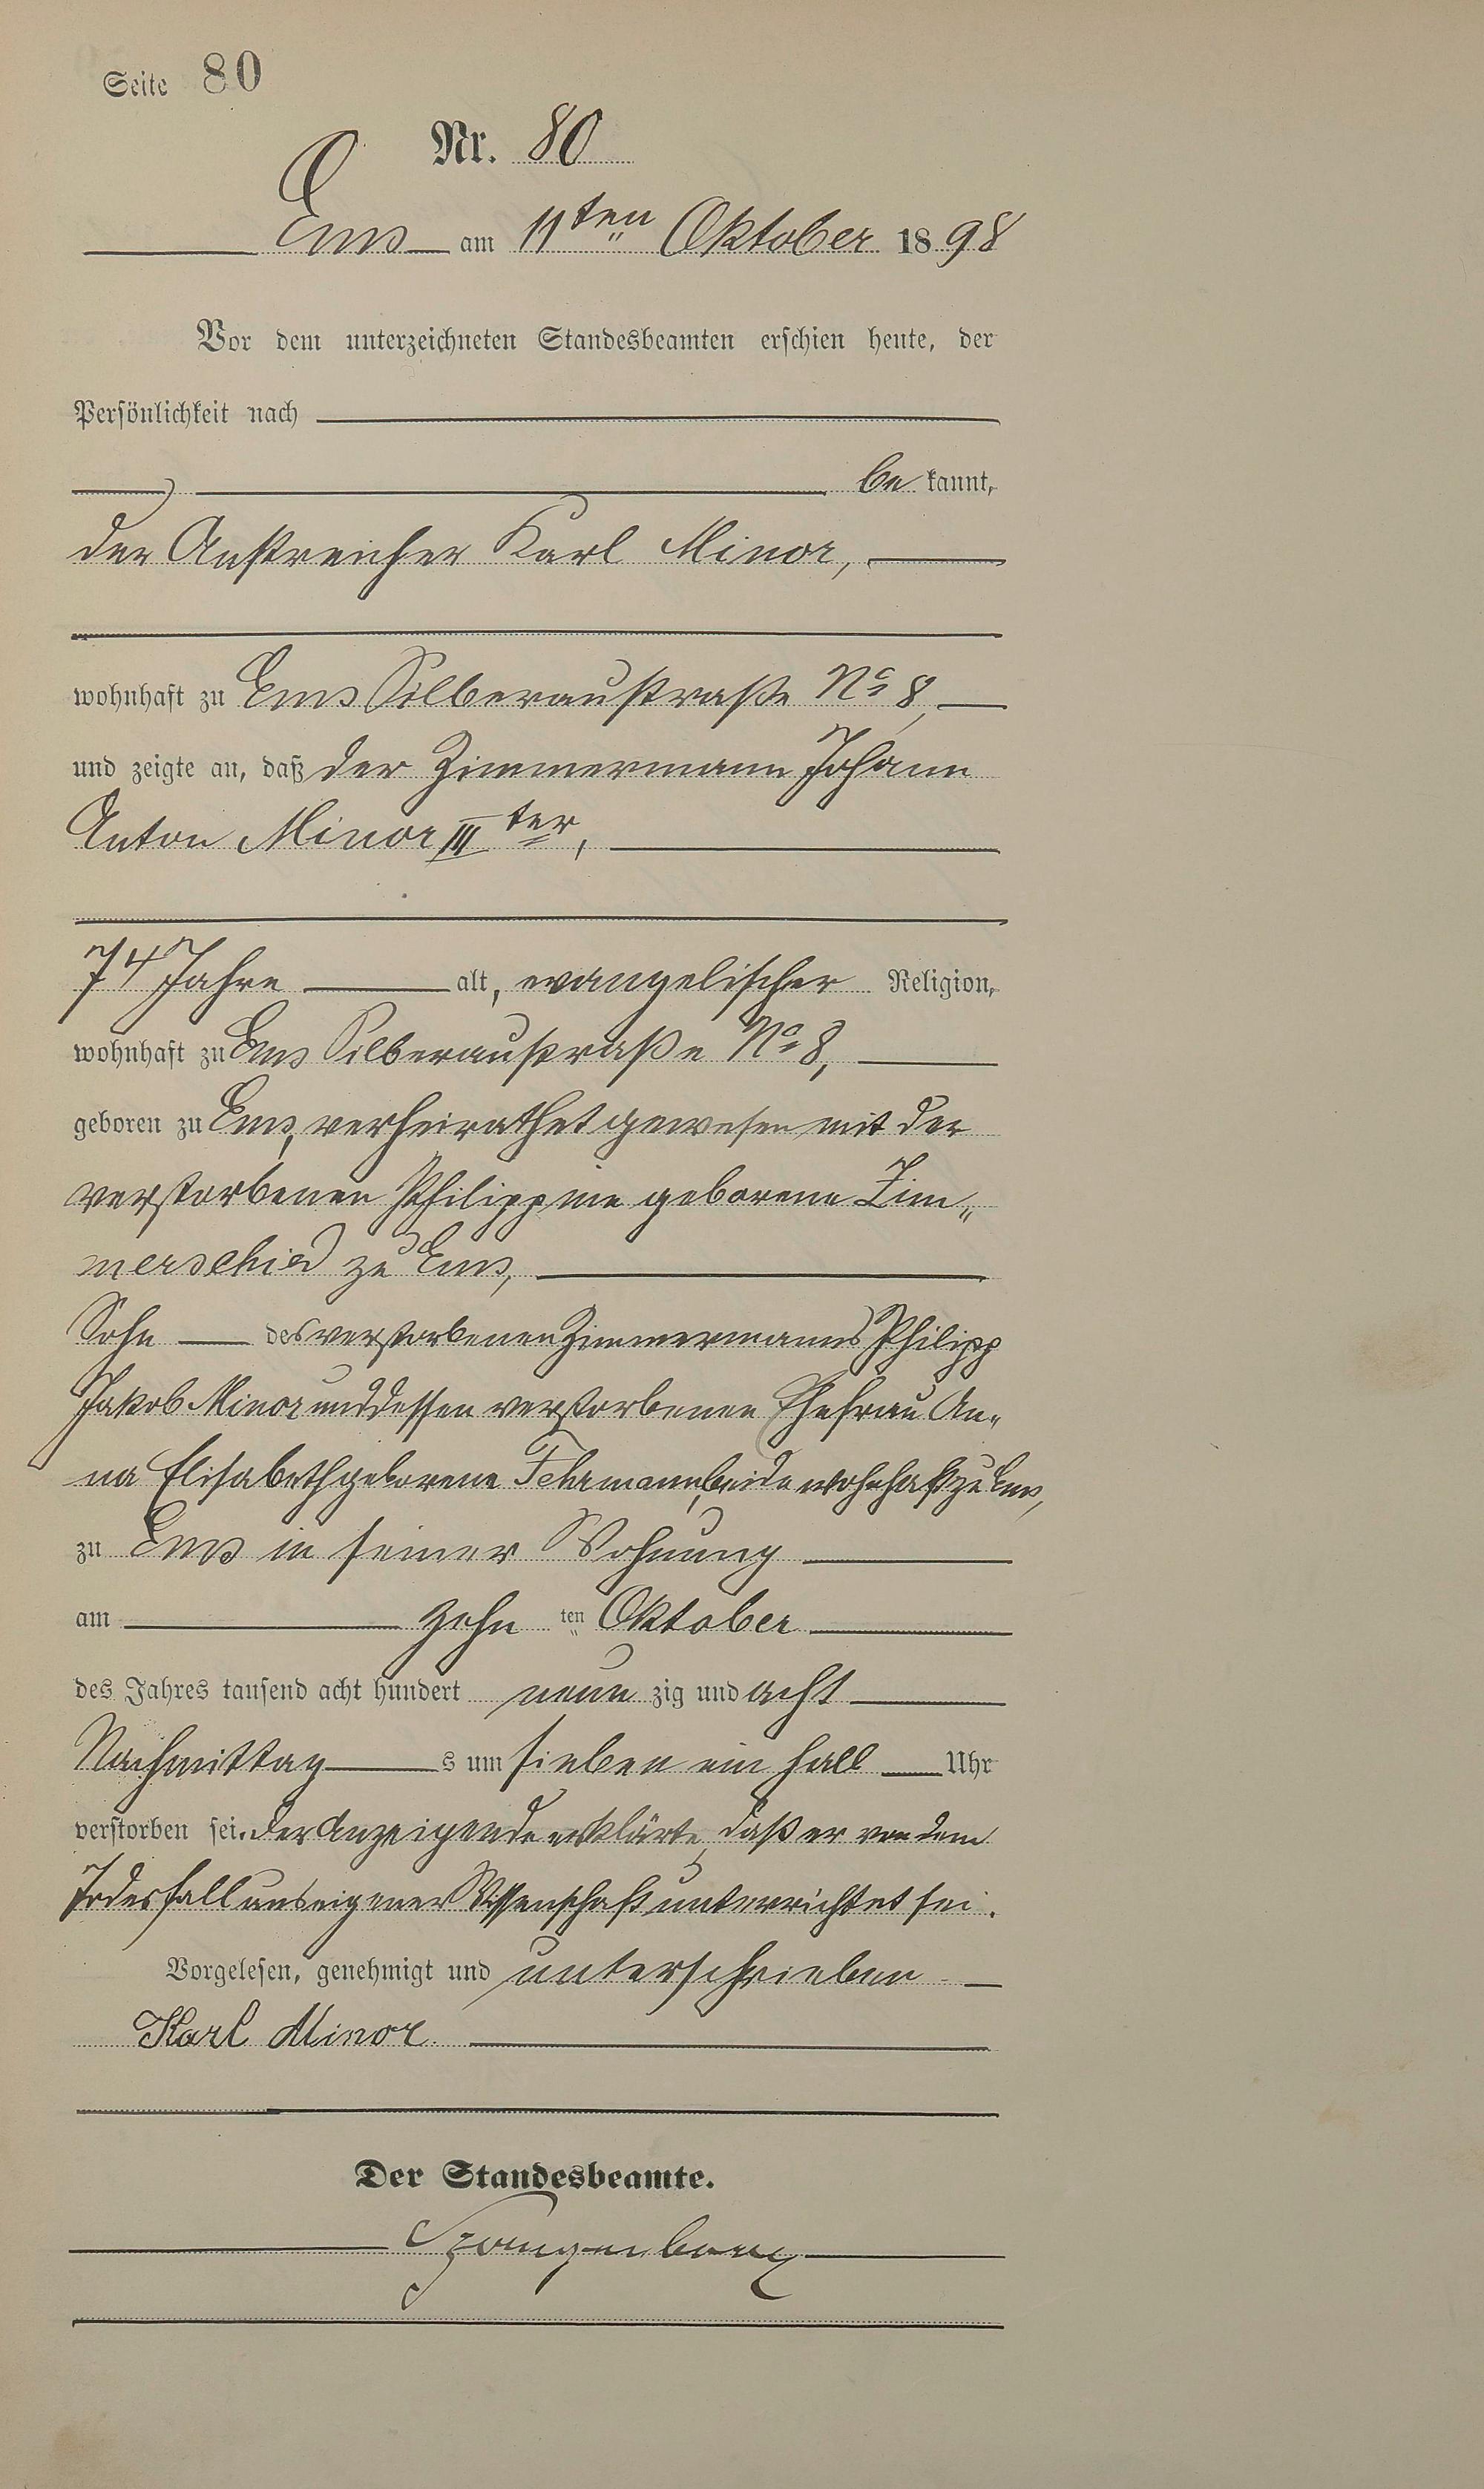 Seite 80
Nr. 80
Ems am 11ten Oktober 1898
Vor dem unterzeichneten Standesbeamten erschien heute, der
Persönlichkeit nach
bekannt,
der Anstreicher Karl Minor,
wohnhaft zu Ems Silberaustraße No 8,
und zeigte an, daß der Zimmermann Johann
Anton Minor IIIter,
74 Jahre alt, evangelischer Religion,
wohnhaft zu Ems Silberaustraße No 8,
geboren zu Ems, verheirathet gewesen mit der
verstorbenen Philippine geborene Zim„
merschied zu Ems,
Sohn des verstorbenen Zimmermanns Philipp
Jakob Minor und dessen verstorbenen Ehefrau An„
na Elisabeth geborene Fehrmann, beide wohnhaft zu Ems,
zu Ems in seiner Wohnung
am zehn ten Oktober
des Jahres tausend acht hundert neun zig und acht
Nachmittag s um sieben ein halb Uhr
verstorben sei. Der Anzeigende erklärte, daß er von dem
Todesfall aus eigener Wissenschaft unterrichtet sei.
Vorgelesen, genehmigt und unterschrieben
Karl Minor.
Der Standesbeamte.